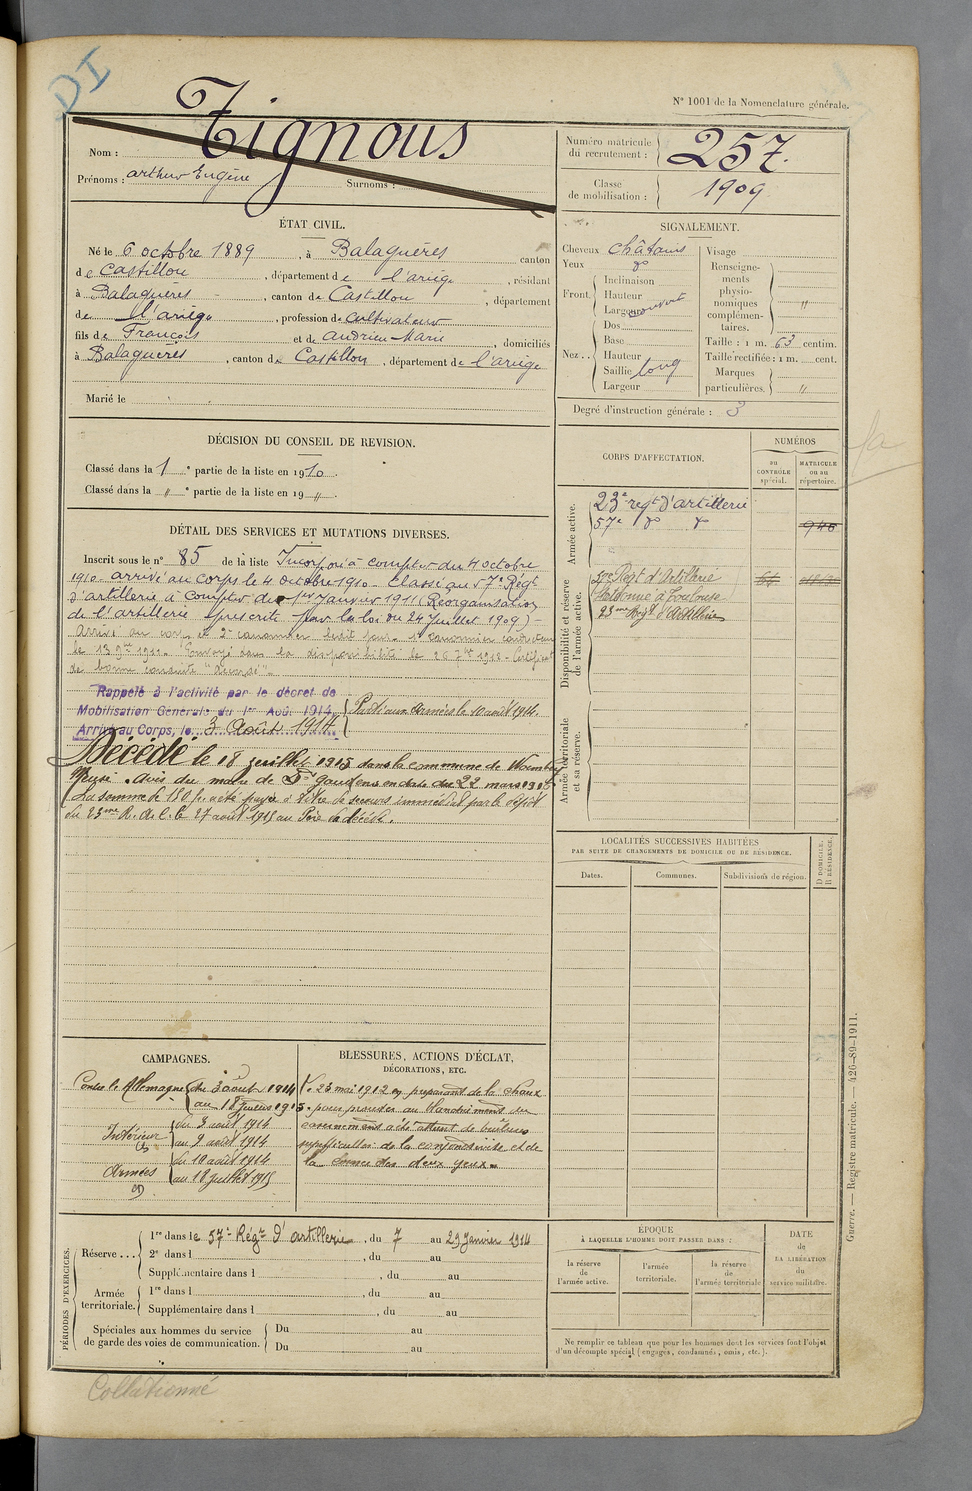 DI
N° 1001 de la Nomenclature générale.
Nom : Tignous
Prénoms : arthur Eugène Surnoms :
Numéro matricule du recrutement : 257.
Classe de mobilisation : 1909
ÉTAT CIVIL.
Né le 6 octobre 1889, à Balaguères canton
de Castillon, département de l'ariège, résidant
à Balaguères, canton de Castillon, département
de l'ariège, profession de cultivateur
fils de François et de andrieu Marie, domiciliés
à Balaguères, canton de Castillon, département de l'ariège
Marié le
SIGNALEMENT.
Cheveux châtains
Yeux d°
Front. Inclinaison
Hauteur
Largeur couvert
Nez.. Dos
Base
Hauteur
Saillie long
Largeur
Visage
Renseignements physionomiques complémentaires. "
Taille : 1 m. 63 centim.
Taille rectifiée : 1 m. cent.
Marques particulières. "
Degré d'instruction générale : 3
DÉCISION DU CONSEIL DE REVISION.
Classé dans la 1 e partie de la liste en 1910.
Classé dans la " e partie de la liste en 19 ".
DÉTAIL DES SERVICES ET MUTATIONS DIVERSES.
Inscrit sous le n° 85 de la liste Incorporé à compter du 4 octobre
1910. arrivé au corps le 4 octobre 1910. Classé au 57e Régt
d'artillerie à compter du 1er Janvier 1911 (Réorganisation
de l'artillerie prescrite par la loi du 24 Juillet 1909) -
Arrivé au corps et 2e canonnier le dit jour. 1er canonnier conducteur
le 13 9bre 1911. Envoyé dans la disponibilité le 26 7bre 1912. Certificat
de bonne conduite "Accordé".
Rappelé à l'activité par le décret de
Mobilisation Générale du 1er Août 1914
Arrivé au Corps, le 3 Août 1914
Parti aux armées le 10 août 1914.
Décédé le 18 juillet 1915 dans la commune de
Meuse. Avis du maire de St gaudens en date du 22 mars
La somme de 150 f. a été payée à titre de secours immédiat par le dépôt
du 23me R. A. C. le 27 août 1915 au Père du décédé.
CORPS D'AFFECTATION.
NUMÉROS
au CONTRÔLE spécial.
MATRICULE ou au répertoire.
Armée active.
23e regt d'artillerie
57e d° d° 946
Disponibilité et réserve de l'armée active.
57e Regt d'Artillerie
Stationné à Toulouse
23me Regt d'Artillerie
Armée territoriale et sa réserve.
LOCALITÉS SUCCESSIVES HABITÉES
PAR SUITE DE CHANGEMENTS DE DOMICILE OU DE RÉSIDENCE.
Dates.
Communes.
Subdivisions de région.
D DOMICILE.
R RÉSIDENCE.
CAMPAGNES.
Contre l'Allemagne du 3 août 1914
au 18 juillet 1915.
Intérieur du 3 août 1914
au 9 août 1914
Armées du 10 août 1914
au 18 juillet 1915
BLESSURES, ACTIONS D'ÉCLAT,
DÉCORATIONS, ETC.
Le 23 mai 1912 en préparant de la chaux
pour procéder au blanchiment du
casernement a été atteint de brûlures
superficielles de la conjonctivite et de
la cornée des deux yeux.
PÉRIODES D'EXERCICES.
Réserve... 1re dans le 57e Régt d'artillerie, du 7 au 29 janvier 1914
2e dans l , du au
Supplémentaire dans l , du au
Armée territoriale. 1re dans l , du au
Supplémentaire dans l , du au
Spéciales aux hommes du service de garde des voies de communication. Du au
Du au
ÉPOQUE
À LAQUELLE L'HOMME DOIT PASSER DANS :
la réserve de l'armée active.
l'armée territoriale.
la réserve de l'armée territoriale
DATE DE LA LIBÉRATION du service militaire.
Ne remplir ce tableau que pour les hommes dont les services font l'objet
d'un décompte spécial (engagés, condamnés, omis, etc.).
Guerre. — Registre matricule. — 426-89-1911.
Collationné